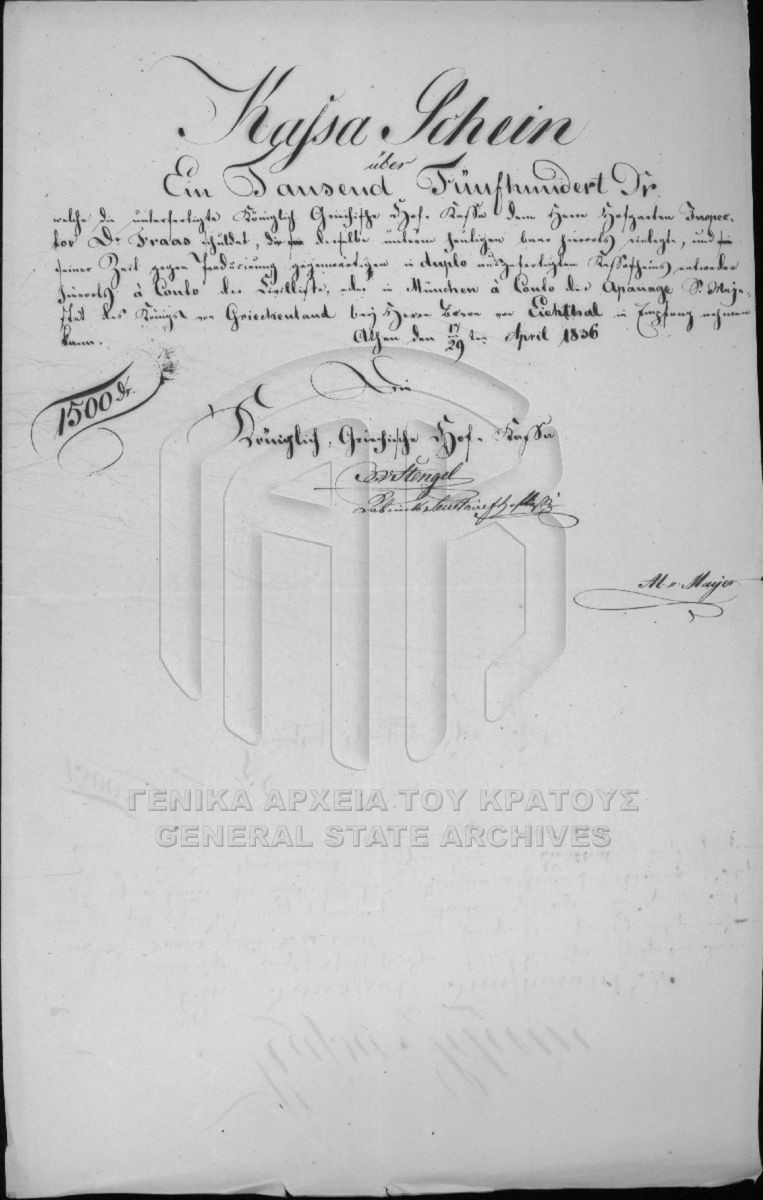 Kassa Schein
über
Ein Tausend Fünfhundert Dr.
welche die unterfertigte Königlich Griechische Hof-Kassa dem Herrn Hofgarten Inspec-
tor Dr. Fraas schuldet, derselbe unterm heutigen baar hierorts einlegte, und
seiner Zeit gegen Producirung gegenwärtigen in duplo ausgefertigten Kassascheins entweder
hierorts à Conto der Civilliste, oder in München à Conto der Apanage Sr. Maje-
stät des Königs von Griechenland bey Herrn Baron von Eichthal in Empfang nehmen
kann.
Athen den 17/29ten April 1836
1500 Dr.
Die
Königlich, Griechische Hof-Kassa
Stengel
M. v. Mayer
ΓΕΝΙΚΑ ΑΡΧΕΙΑ ΤΟΥ ΚΡΑΤΟΥΣ
GENERAL STATE ARCHIVES